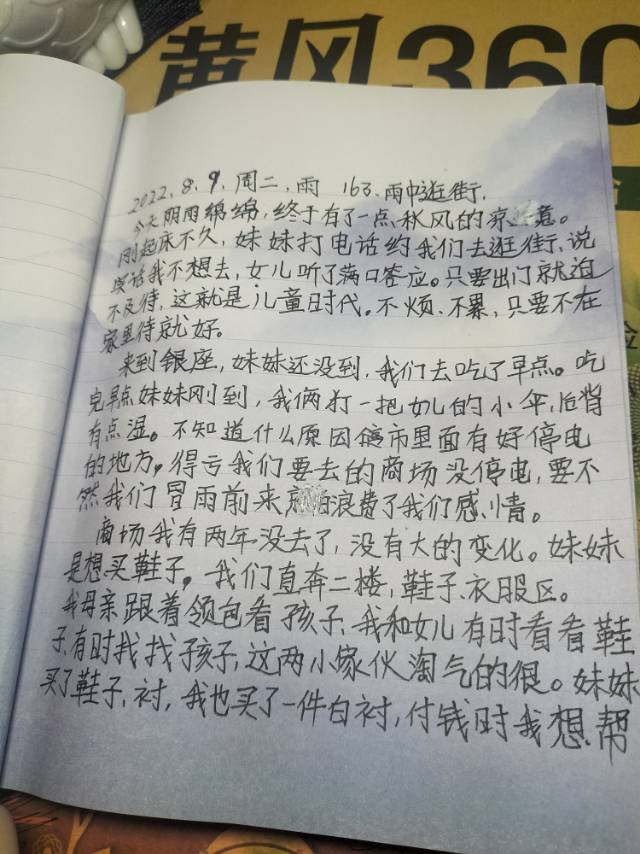 黄风360
2022.8.9.周二,雨 163.雨中逛街.
今天阴雨绵绵,终于有了一点秋风的凉意。
刚起床不久,妹妹打电话约我们去逛街,说
实话我不想去,女儿听了满口答应。只要出门就迫
不及待,这就是儿童时代。不烦、不累,只要不在
家里待就好。
来到银座,妹妹还没到,我们去吃了早点。吃
完早点妹妹刚到,我俩打一把女儿的小伞,后背
有点湿。不知道什么原因镇市里面有好停电
的地方,得亏我们要去的商场没停电,要不
然我们冒雨前来 浪费了我们感情。
商场我有两年没去了,没有大的变化。妹妹
是想买鞋子,我们直奔二楼,鞋子、衣服区。
我母亲跟着领包看孩子,我和女儿有时看看鞋
子,有时找找孩子,这两小傢伙淘气的很。妹妹
买了鞋子,衬,我也买了一件白衬,付钱时我想帮